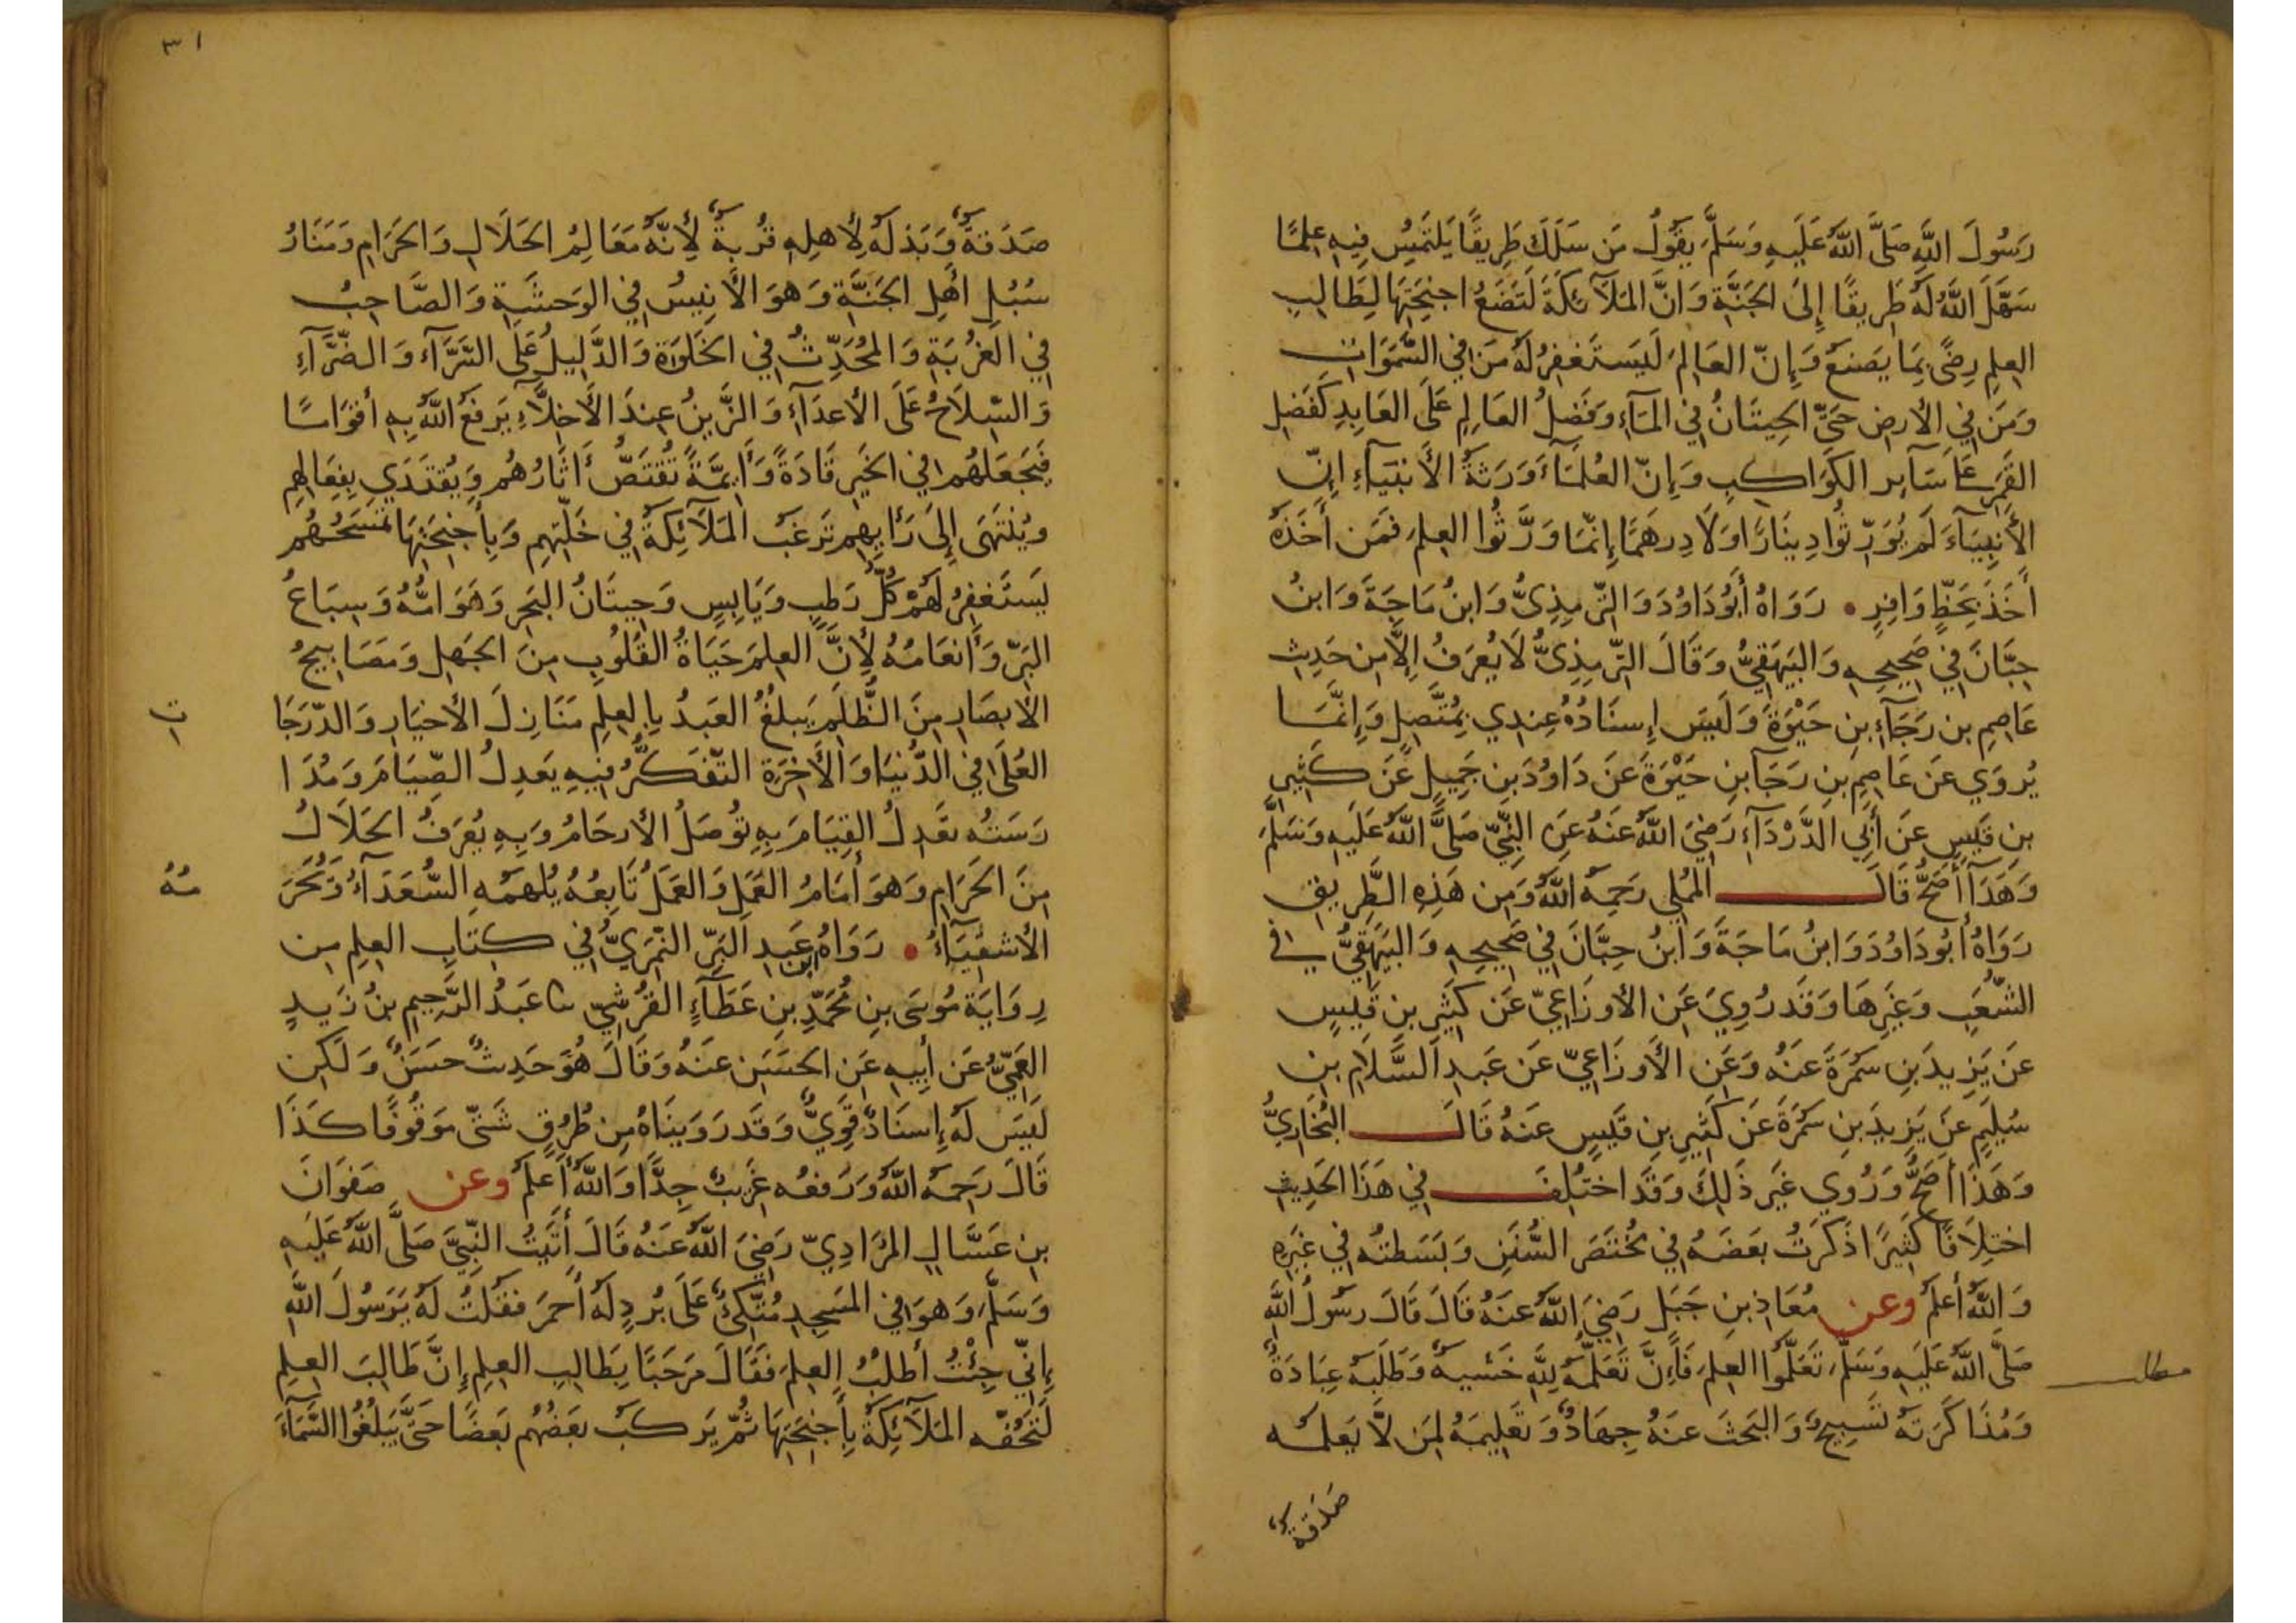 رَسُولَ اللَّهِ صَلَّى اللَّهُ عَلَيهِ وَسَلَّمَ يَقُولُ مَن سَلَكَ طَرِيقًا يَلتَمِسُ فِيهِ عِلمًا
سَهَّلَ اللَّهُ لَهُ طَرِيقًا إِلَى الجَنَّةِ وَانَّ المَلَآئِكَةَ لَتَضَعُ اجنِحَتِهَا لِطَالِبِ
العِلمِ رِضًى بِمَا يَصنَعُ وَإِنّ العَالِمَ لَيَستَغفِرُ لَهُ مَن فِي السَّمَوَاتِ
وَمَن فِي الأَرضِ حَتَّى الحِيتَانُ فِي المَآءِ وَفَضلُ العَالِمِ عَلَى العَابِدِ كَفَضلِ
القَمَرِ عَلَى سَآيِرِ الكَوَاكِبِ وَإِنّ العُلَمَآءَ وَرَثَةُ الأَنبِيَآءِ اِنّ
الأَنبِيَآءَ لَم يُوَرِّثُوا دِينَارًا وَلَا دِرهَمًا إِنَّمَا وَرَّثُوا العِلمَ فَمَن أَخَذَهُ
أَخَذَ بِحَظٍّ وَافِرٍ • رَوَاهُ أَبُو دَاوُدَ وَالتِّرمِذِيُّ وَابنُ مَاجَةَ وَابنُ
حِبَّانَ فِي صَحِيحِهِ وَالبَيهَقِيُّ وَقَالَ التِّرمِذِيُّ لَا يُعرَفُ اِلَّا مِن حَدِيثِ
عَاصِمِ بن رَجَآءِ بنِ حَيْوَةَ وَلَيسَ إِسنَادُهُ عِندِي بِمُتَّصِلٍ وَإِنَّمَا
يُروَي عَن عَاصِمِ بنِ رَجَا بنِ حَيْوَةَ عَن دَاوُدَ بنِ جَمِيلٍ عَن كَثِيرِ
بنِ قَيسٍ عَن أَبِي الدَّرْدَآءِ رَضِيَ اللَّهُ عَنهُ عَنِ النَّبِيِّ صَلَّى اللَّهُ عَلَيهِ وَسَلَّمَ
وَهَذَا أَصَحُّ قَالَ المُملِي رَحِمَهُ اللَّهُ وَمِن هَذِهِ الطَّرِيقِ
رَوَاهُ أَبُو دَاوُدَ وَابنُ مَاجَةَ وَابنُ حِبَّانَ فِي صَحِيحِهِ وَالبَيهَقِيُّ فِي
الشُّعَبِ وَغَيرِهَا وَقَد رُوِيَ عَنِ الأَوزَاعِيّ عَن كَثِيرِ بنِ قَيسٍ
عَن يَزِيدَ بنِ سَمُرَةَ عَنهُ وَعَنِ الأَوزَاعِيّ عَن عَبدِ السَّلَامِ بنِ
سُلَيمٍ عَن يَزِيدَ بنِ سَمُرَةَ عَن كَثِيرِ بنِ قَيسٍ عَنهُ قَالَ البُخَارِيُّ
وَهَذَا أَصَحُّ وَرُوِي غَير ذَلِكَ وَقَد اختُلِفَ فِي هَذَا الحَدِيثِ
اختِلَافًا كَثِيرًا ذَكَرتُ بَعضَهُ فِي مُختَصَرِ السُّنَنِ وَبَسَطتُه فِي غَيرِهِ
وَاللَّهُ أَعلَمُ وعن مُعَاذِ بنِ جَبَلٍ رَضِيَ اللَّهُ عَنهُ قَالَ قَالَ رسُولُ اللَّهِ
صَلَّى اللَّهُ عَلَيهِ وَسَلَّمَ تَعَلَّمُوا العِلمَ فَاِنَّ تَعَلُّمَهُ لِلَّهِ خَشيَةٌ وَطَلَبَهُ عِبَادَةٌ
مطلب
وَمُذَاكَرَتَهُ تَسبِيحٌ وَالبَحثَ عَنهُ جِهَادٌ وَتَعلِيمَهُ لِمَن لَا يَعلَمُه
صَدَقةٌ
٣١
صَدَقَةٌ وَبَذلَهُ لِأَهلِهِ قُربَةٌ لِأَنَّهُ مَعَالِمُ الحَلَالِ وَالحَرَامِ وَمَنَارُ
سُبُلِ أَهلِ الجَنَّةِ وَهوَ الأَنِيسُ فِي الوَحشَةِ وَالصَّاحِبُ
فِي الغُربَةِ وَالمُحَدِّثُ فِي الخَلوَةِ وَالدَّلِيلُ عَلَى السَّرَّآءِ وَالضَّرَّآءِ
وَالسِّلَاحُ عَلَى الأَعدَآءِ وَالزَّينُ عِندَ الأَخِلَّآءِ يَرفَعُ اللَّهُ بِهِ أَقوَامًا
فَيَجعَلُهُم فِي الخَيرِ قَادَةً وَأَيِمَّةً تُقتَصُّ أَثَارُهُم وَيُقتَدَي بِفِعَالِهِم
وَيُنتَهَى إِلَى رَايِهِم تَرغَبُ المَلَآئِكَةُ فِي خَلَّتِهِم وَبِأَجنِحَتِهَا تَمسَحُهُم
يَستَغفِرُ لَهُم كُلُّ رَطبٍ وَيَابِسٍ وَحِيتَانُ البَحرِ وَهَوَامُّهُ وَسِبَاعُ
البَرِّ وَأَنعَامُهُ لِأَنَّ العِلمَ حَيَاةُ القُلُوبِ مِنَ الجَهلِ وَمَصَابِيحُ
الأَبصَارِ مِنَ الظُّلَمِ يَبلُغُ العَبدُ بِالعِلمِ مَنَازِلَ الأَخيَارِ وَالدَّرَجَا
ت
العُلَى فِي الدُّنيَا وَالأَخِرَةِ التَّفَكُّرُ فِيهِ يَعدِلُ الصِّيَامَ وَمُدَا
رَسَتُه تَعدِلُ القِيَامَ بِهِ تُوصَلُ الأَرحَامُ وَبِهِ يُعرَفُ الحَلَالُ
مِنَ الحَرَامِ وَهوَ أَمَامُ العَمَلِ وَالعَمَلُ تَابِعُهُ يُلهَمُهُ السُّعَدَآءُ وَيُحرَ
مُهُ
الأَشقِيَآءُ • رَوَاهُ ابن عَبدِ البَرِّ النَّمَرِيُّ فِي كِتَابِ العِلمِ مِن
رِوَايَةِ مُوسَى بنِ مُحَمَّدِ بنِ عَطَآءٍ القُرَشِيّ نا عَبدُ الرَّحِيمِ بنُ زَيدٍ
العَمِّيُّ عَن أَبِيهِ عَنِ الحَسَنِ عَنهُ وَقَالَ هُوَ حَدِيثٌ حسَنٌ وَلَكِن
لَيسَ لَهُ إِسنَادٌ قَوِيٌّ وَقَد رَوَينَاهُ مِن طُرُقٍ شَتَّى مَوقُوفًا كَذَا
قَالَ رَحِمَهُ اللَّهُ وَرَفعُه غَرِيبٌ جِدًّا وَاللَّهُ أَعلَمُ وعن صَفوَانَ
بنِ عَسَّالٍ المُرَادِيّ رَضِيَ اللَّهُ عَنهُ قَالَ أَتَيتُ النَّبِيَّ صَلَّى اللَّهُ عَلَيهِ
وَسَلَّمَ وَهوَ فِي المَسجِدِ مُتَّكِئٌ عَلَى بُردٍ لَهُ أَحمَرَ فَقُلتُ لَهُ يَرَسُولَ اللَّهِ
إِنِّي جِئْتُ أَطلُبُ العِلمَ فَقَالَ مَرحَبًا بِطَالِبِ العِلمِ إِنَّ طَالِبَ العِلمِ
لَتَحُفُّه المَلَآئِكَةُ بِأَجنِحَتِهَا ثُمَّ يَركَبُ بَعضُهُم بَعضًا حَتَّى يَبلُغُوا السَّمَآءَ